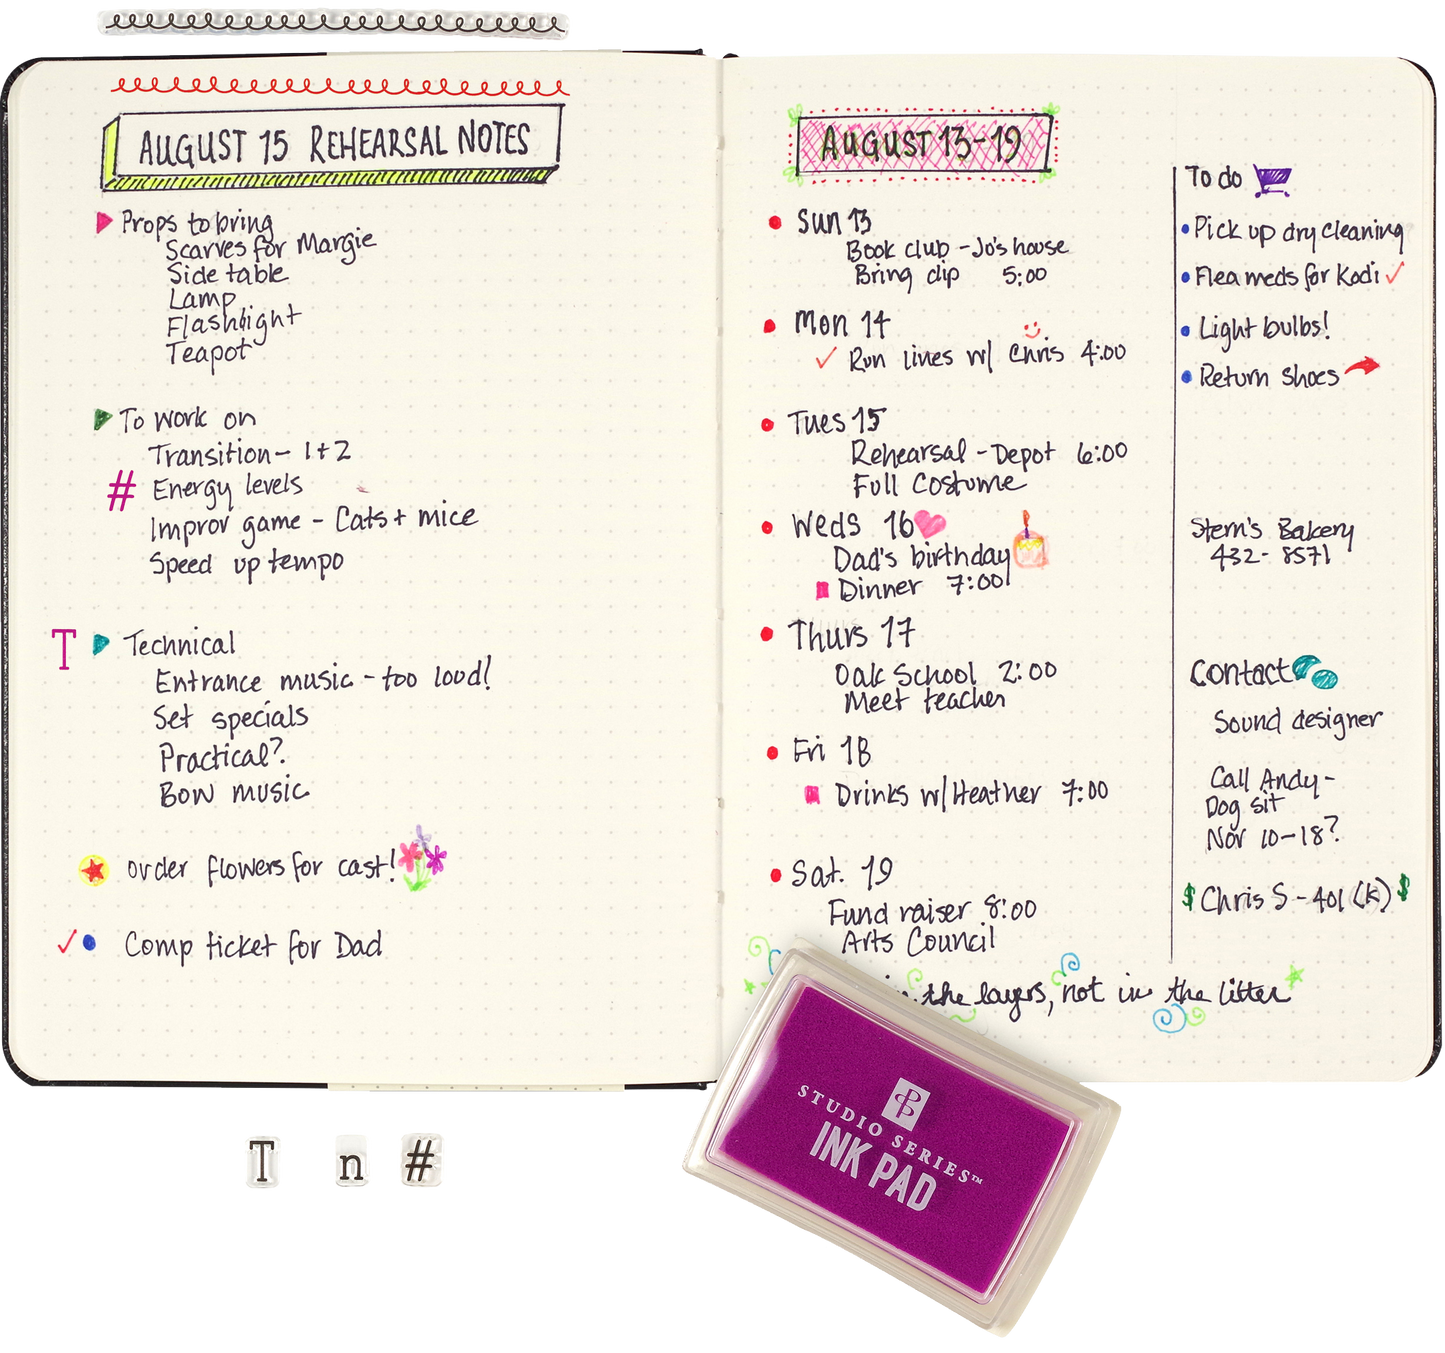 AUGUST 15 REHEARSAL NOTES
Props to bring
Scarves for Margie
Side table
Lamp
Flashlight
Teapot
To work on
Transition- 1+2
# Energy levels
Improv game - Cats + mice
Speed up tempo
T Technical
Entrance music - too loud!
Set specials
Practical?
Bow music
order flowers for cast!
Comp ticket for Dad
AUGUST 13-19
Sun 13
Book club - Jo's house
Bring dip 5:00
Mon 14
Run lines w/ Chris 4:00
Tues 15
Rehearsal - Depot 6:00
Full Costume
Weds 16
Dad's birthday
Dinner 7:00
Thurs 17
Oak School 2:00
Meet teacher
Fri 18
Drinks w/ Heather 7:00
Sat. 19
Fund raiser 8:00
Arts Council
in the layers, not in the litter
To do
Pick up dry cleaning
Flea meds for Kodi
Light bulbs!
Return shoes
Stern's Bakery
432-8571
Contact
Sound designer
Call Andy-
Dog sit
Nov 10-18?
$ Chris S - 401 (K) $
T n #
STUDIO SERIES™
INK PAD